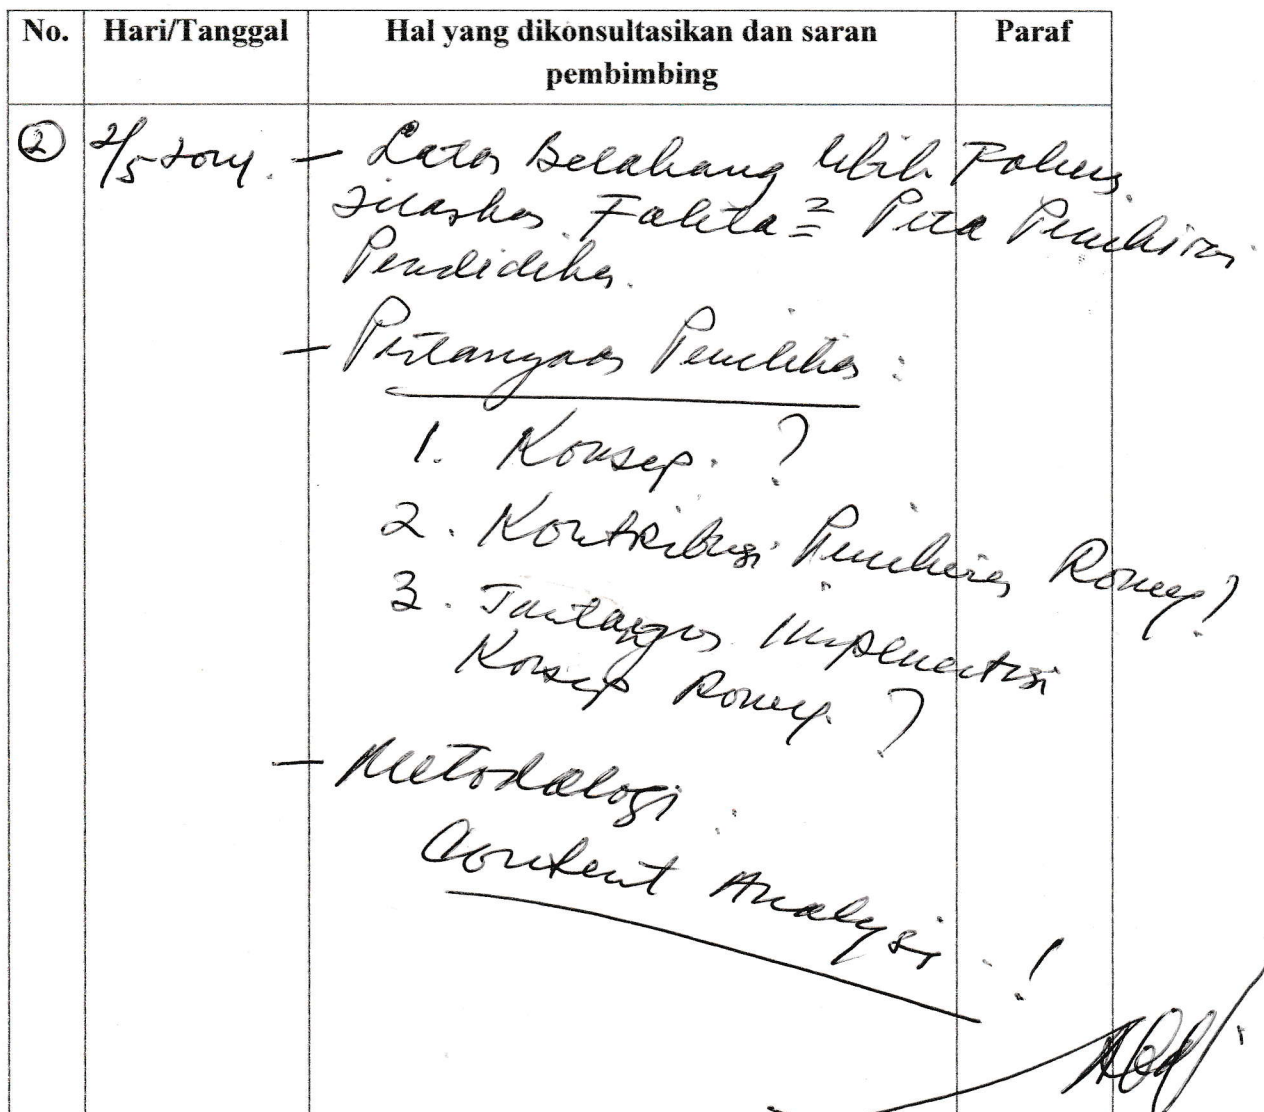 No. Hari/Tanggal Hal yang dikonsultasikan dan saran pembimbing Paraf
② 2/5 2014. – Latar Belakang lebih Fokus.
Fakta² = Peta Pemikiran
Pendidikan.
– Pertanyaan Penelitian :
1. Konsep. ?
2. Kontribusi Pemikiran Romey?
3. Tantangan Implementasi
Konsep Romey. ?
– Metodologi :
Content Analysis. !